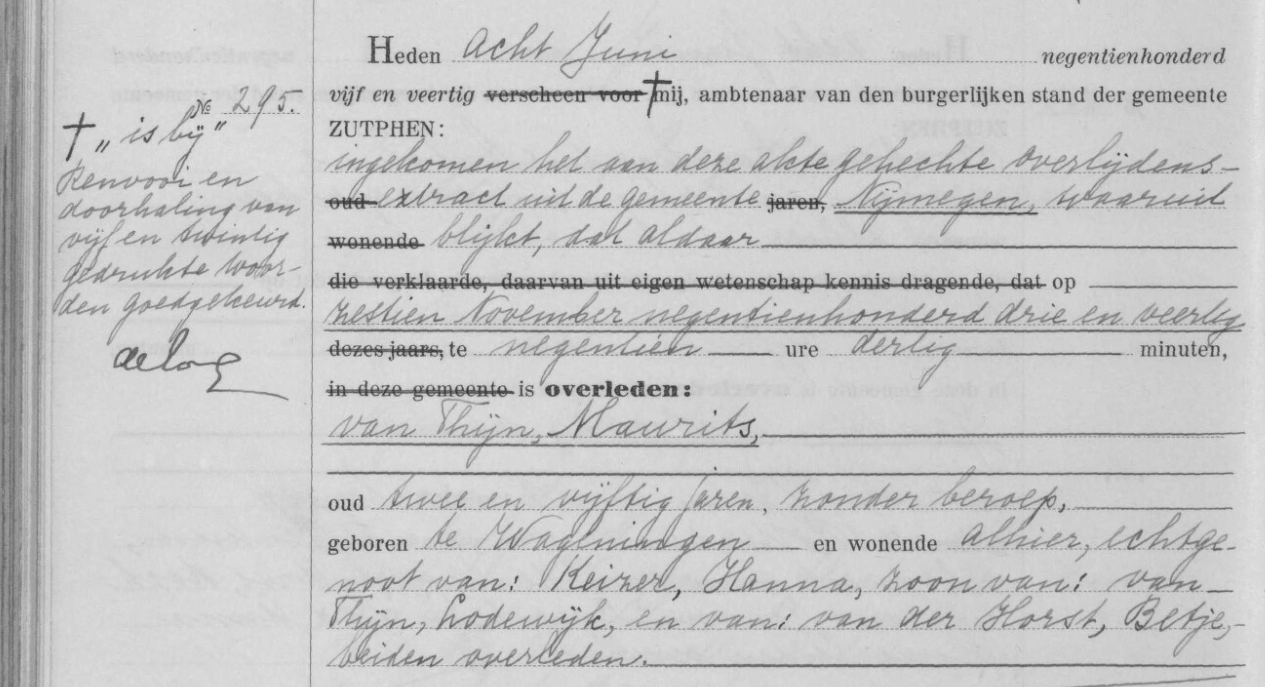 Heden acht Juni negentienhonderd
vijf en veertig verscheen voor † mij, ambtenaar van den burgerlijken stand der gemeente
ZUTPHEN:
No 295.
† „ is bij "
Renvooi en
doorhaling van
vijf en twintig
gedrukte woor-
den goedgekeurd.
ingekomen het aan deze akte gehechte overlijdens-
oud extract uit de gemeente jaren, Nijmegen, waaruit
wonende blijkt, dat aldaar
die verklaarde, daarvan uit eigen wetenschap kennis dragende, dat op
zestien November negentienhonderd drie en veertig
dezes jaars, te negentien ure dertig minuten,
in deze gemeente is overleden:
van Thijn, Maurits,
oud twee en vijftig jaren, zonder beroep,
geboren te Wageningen en wonende alhier, echtge-
noot van: Keizer, Hanna, zoon van: van
Thijn, Lodewijk, en van: van der Horst, Betje,
beiden overleden.